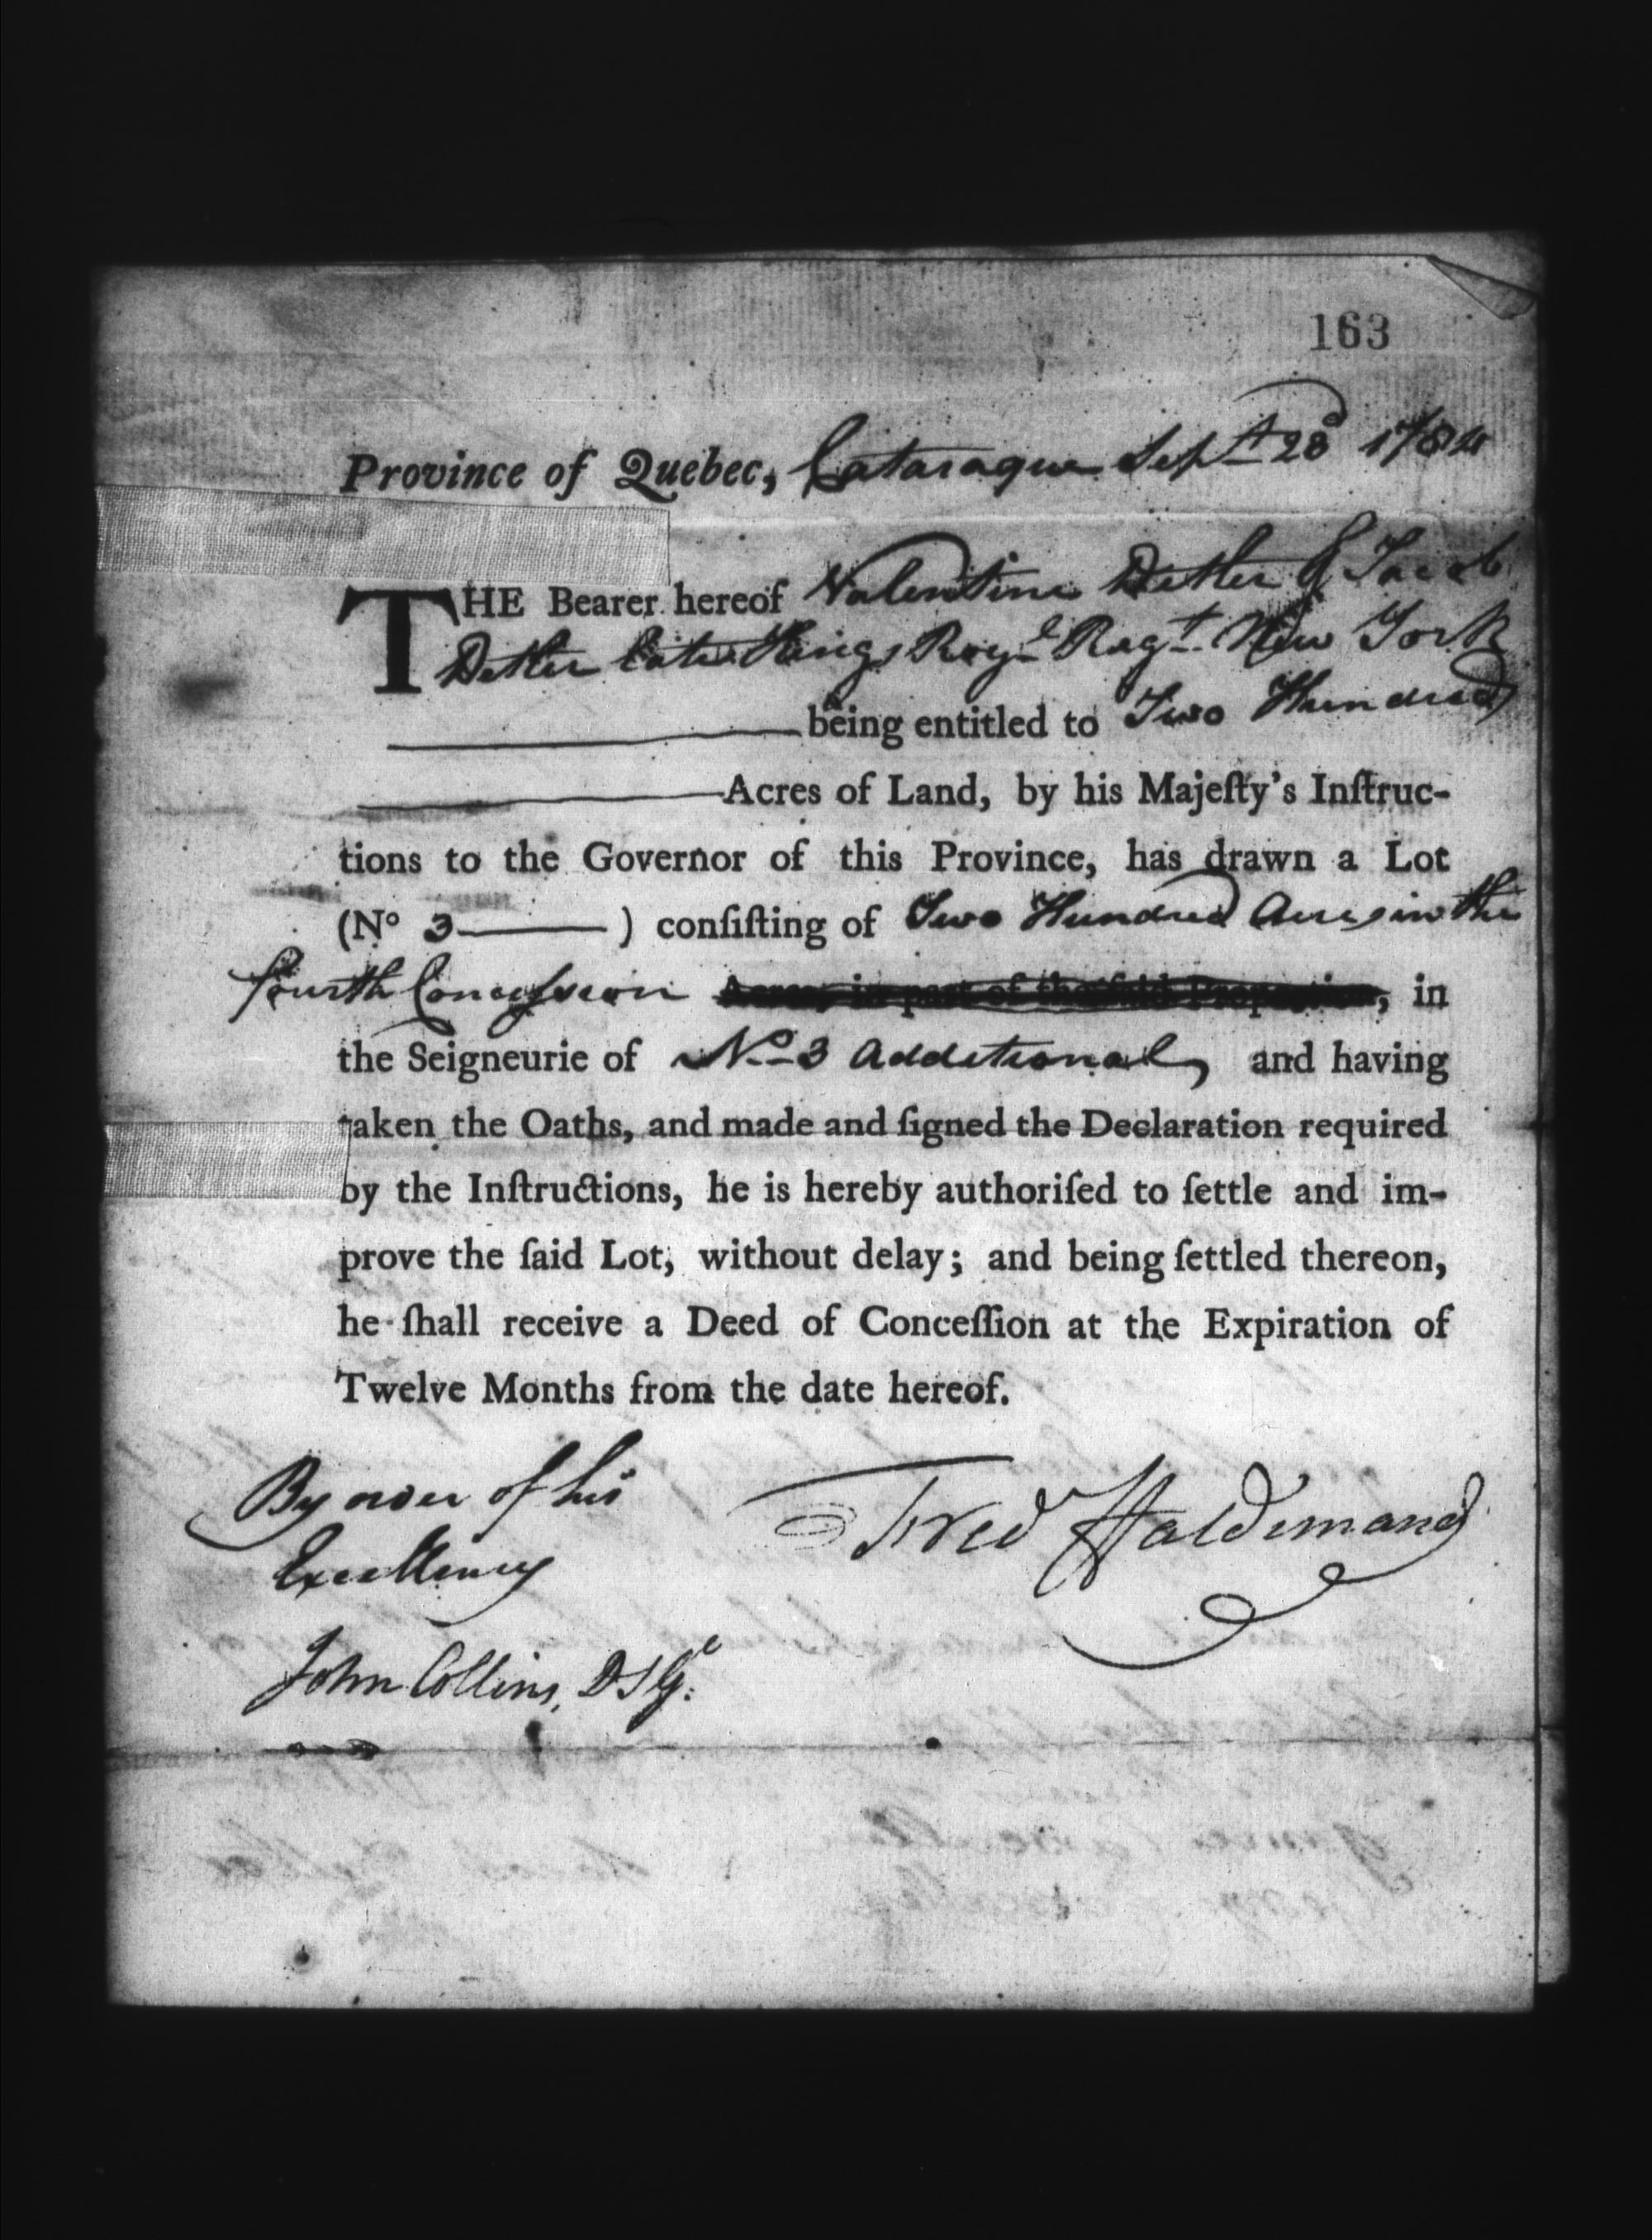 163
Province of Quebec, Cataraqui Sept 28d 1784
THE Bearer hereof Valentine Detler & Jacob
Detler late Kings Royl Regt New York
being entitled to Two Hundred
Acres of Land, by his Majeſty's Inſtruc-
tions to the Governor of this Province, has drawn a Lot
(No 3 ) conſiſting of Two Hundred Acres in the
fourth Concession Acres, in part of the ſaid Proportion, in
the Seigneurie of No 3 Additional, and having
taken the Oaths, and made and ſigned the Declaration required
by the Inſtructions, he is hereby authoriſed to ſettle and im-
prove the ſaid Lot, without delay; and being ſettled thereon,
he ſhall receive a Deed of Conceſſion at the Expiration of
Twelve Months from the date hereof.
By order of his
Excellency
Fred Haldimand
John Collins, D S Gl